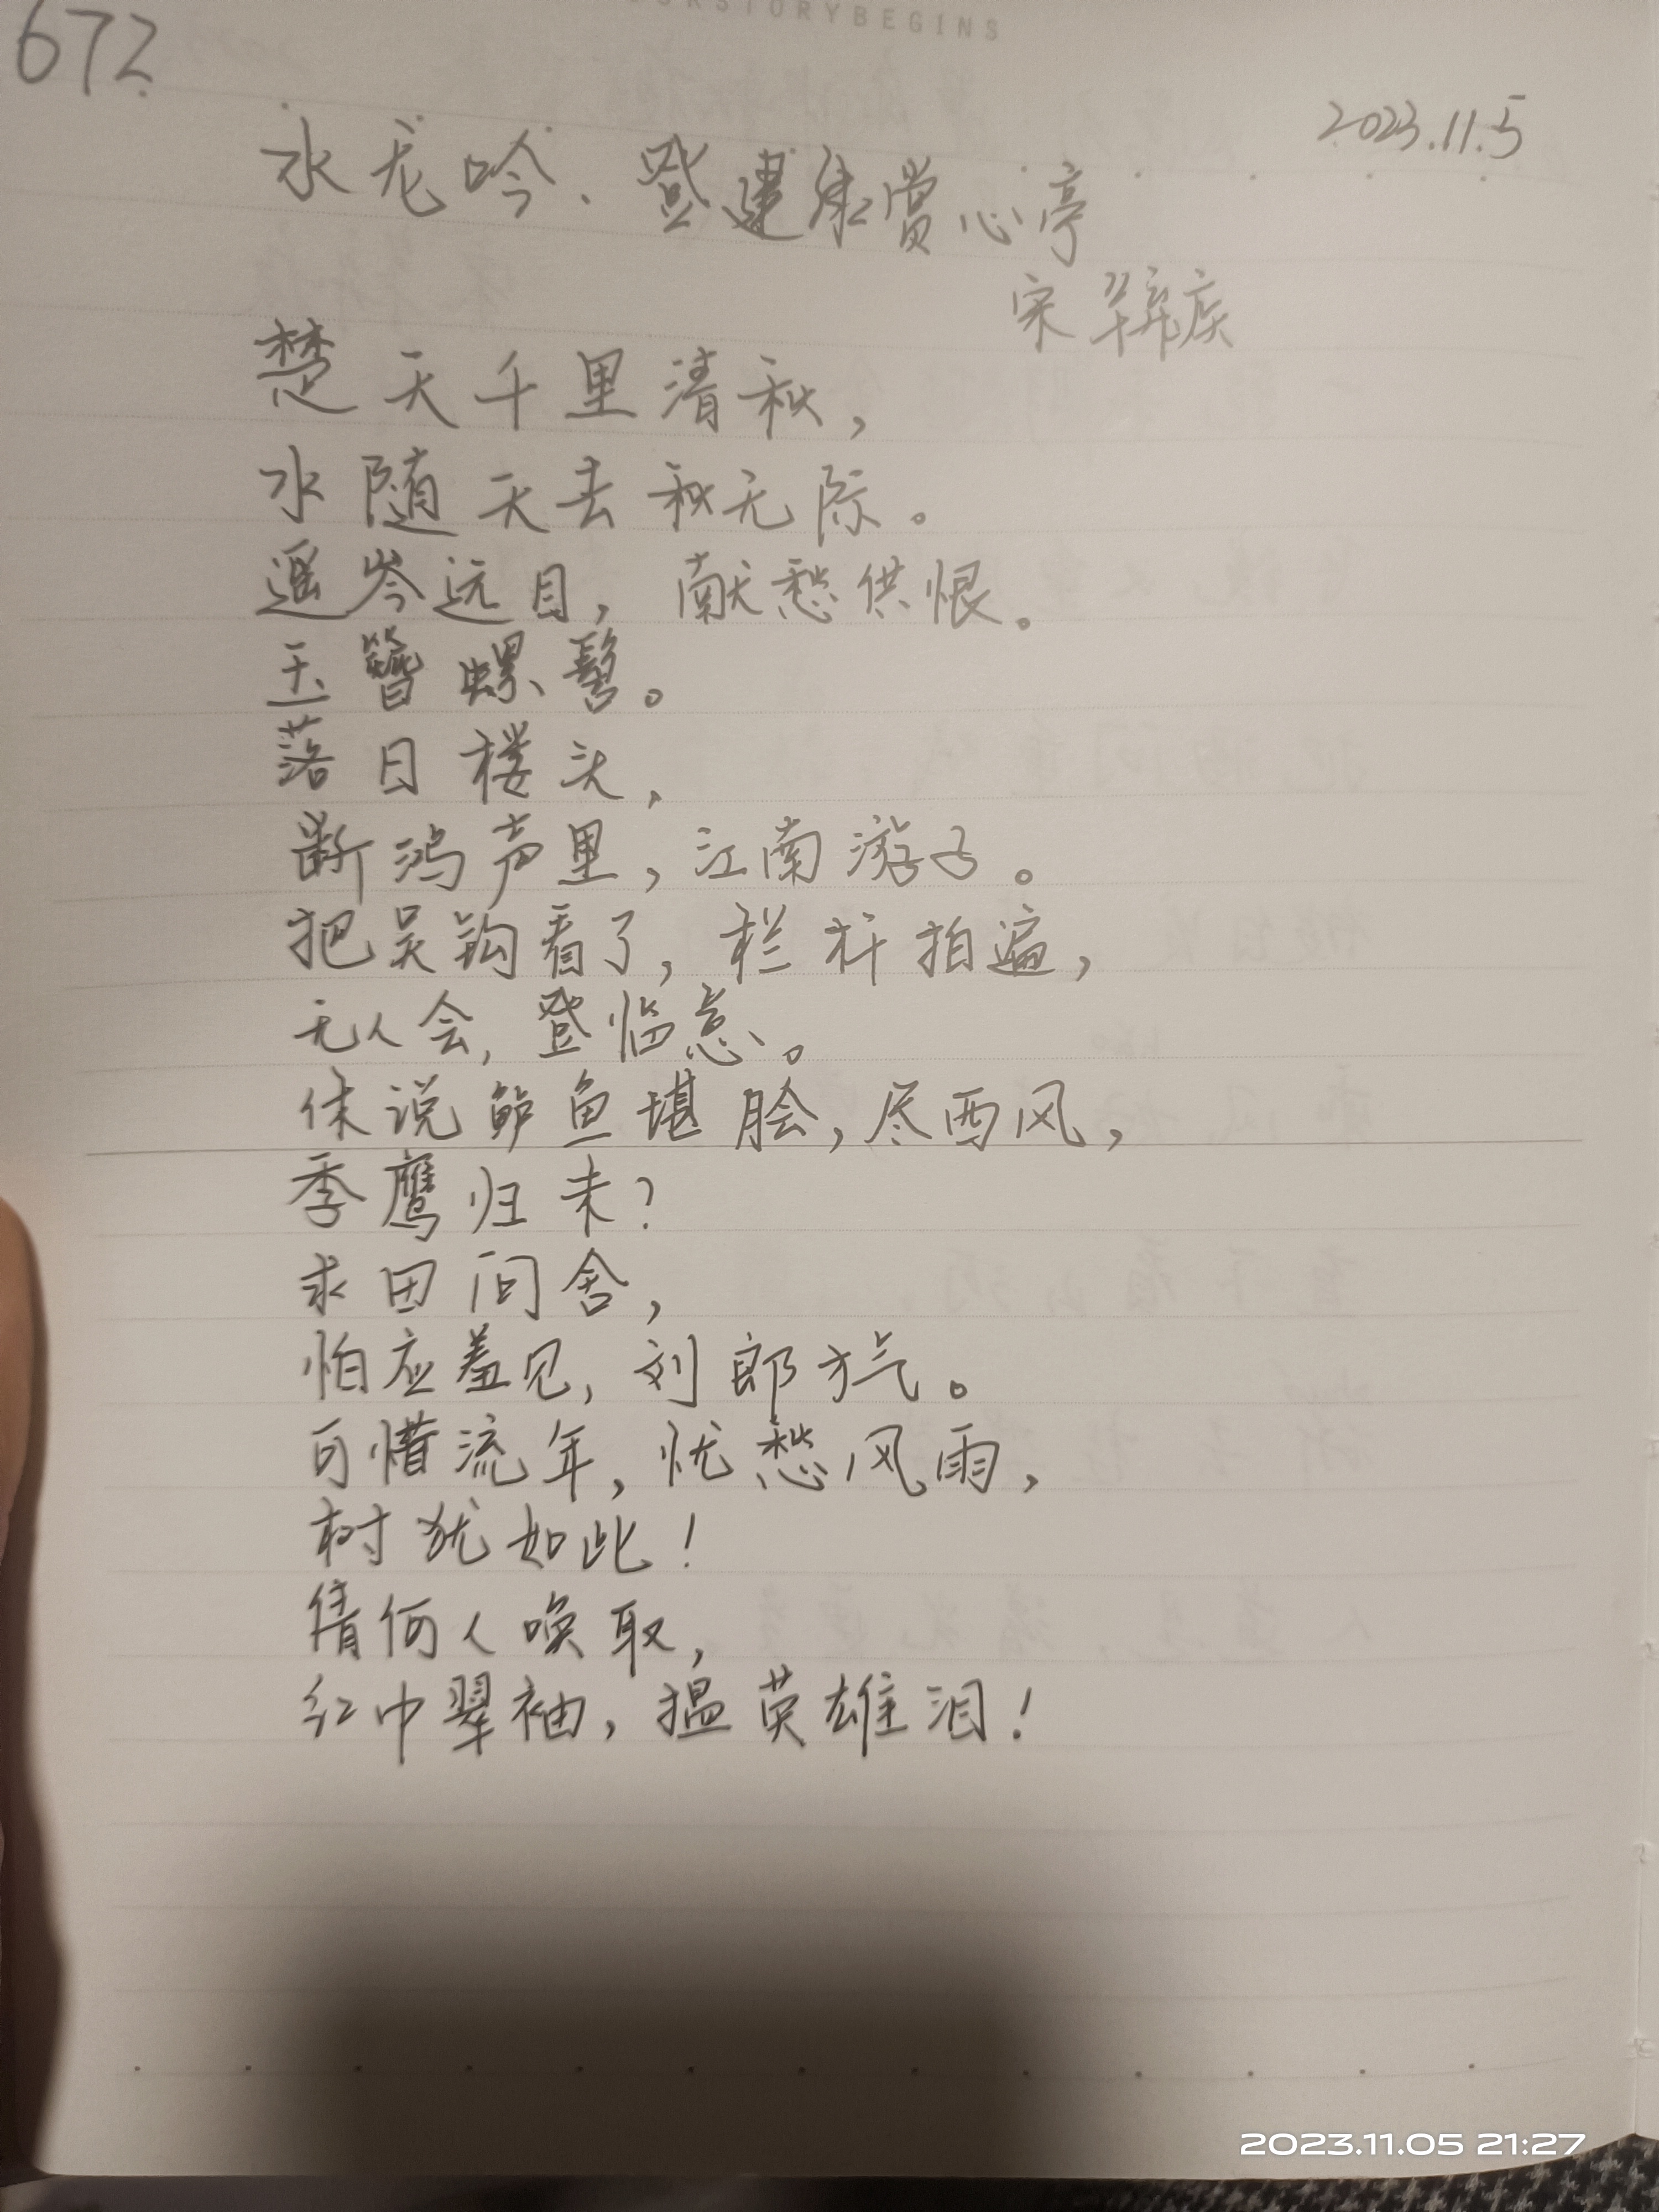 672
RSTORYBEGINS
2023.11.5
水龙吟.登建康赏心亭
宋 辛弃疾
楚天千里清秋,
水随天去秋无际。
遥岑远目,献愁供恨。
玉簪螺髻。
落日楼头,
断鸿声里,江南游子。
把吴钩看了,栏杆拍遍,
无人会,登临意。
休说鲈鱼堪脍,尽西风,
季鹰归未?
求田问舍,
怕应羞见,刘郎才气。
可惜流年,忧愁风雨,
树犹如此!
倩何人唤取,
红巾翠袖,揾英雄泪!
2023.11.05 21:27